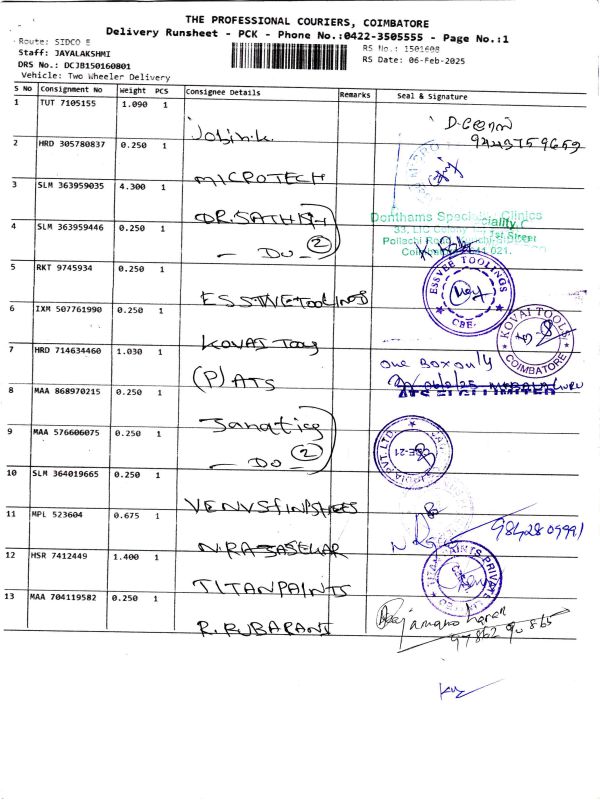 THE PROFESSIONAL COURIERS, COIMBATORE
Delivery Runsheet - PCK - Phone No.:0422-3505555 - Page No.:1
Route: SIDCO E
RS No.: 1501608
Staff: JAYALAKSHMI
RS Date: 06-Feb-2025
DRS No.: DCJB150160801
Vehicle: Two Wheeler Delivery
S No Consignment No Weight PCS Consignee Details Remarks Seal & Signature
1 TUT 7105155 1.090 1
9443759659
2 HRD 305780837 0.250 1 MICROTECH
3 SLM 363959035 4.300 1 DR.SATHISH
Donthams Clinics
33, LIC Colony 1st Street
4 SLM 363959446 0.250 1 - DO - 2
5 RKT 9745934 0.250 1 ESSVEE TOOLINGS
ESSVEE TOOLINGS
CBE
6 IXM 507761990 0.250 1 KOVAI Tools
KOVAI TOOLS
COIMBATORE
7 HRD 714634460 1.030 1 (P) ATS
one Box only
8 MAA 868970215 0.250 1 Janatics
ATS ELGI LIMITED
9 MAA 576606075 0.250 1 - DO - 2
CBE-21
10 SLM 364019665 0.250 1
11 MPL 523604 0.675 1 N.RAJASEKAR
9842809991
12 HSR 7412449 1.400 1 TITANPAINTS
TITAN PAINTS PRIVATE
13 MAA 704119582 0.250 1 R.RUBARANI
Rajamanoharan